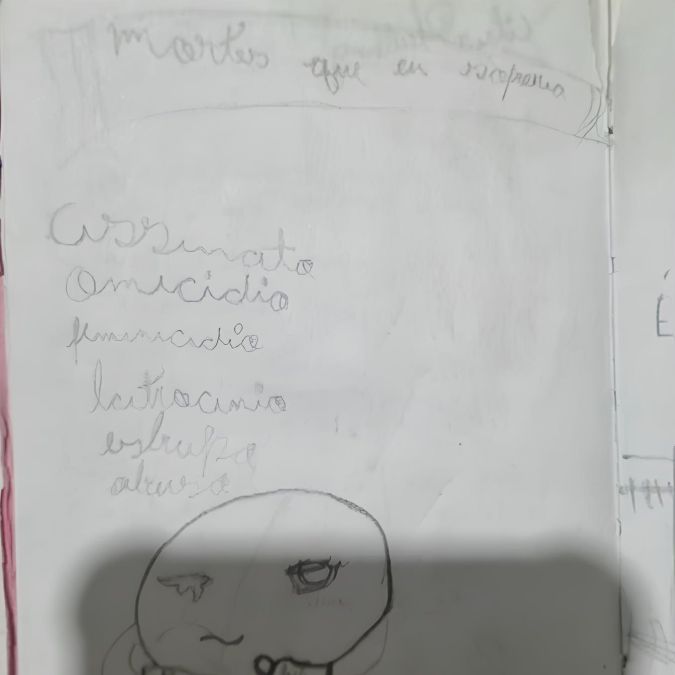 mortes que eu
assinato
omicidio
feminicidio
latrocinio
estrupo
abuso
É